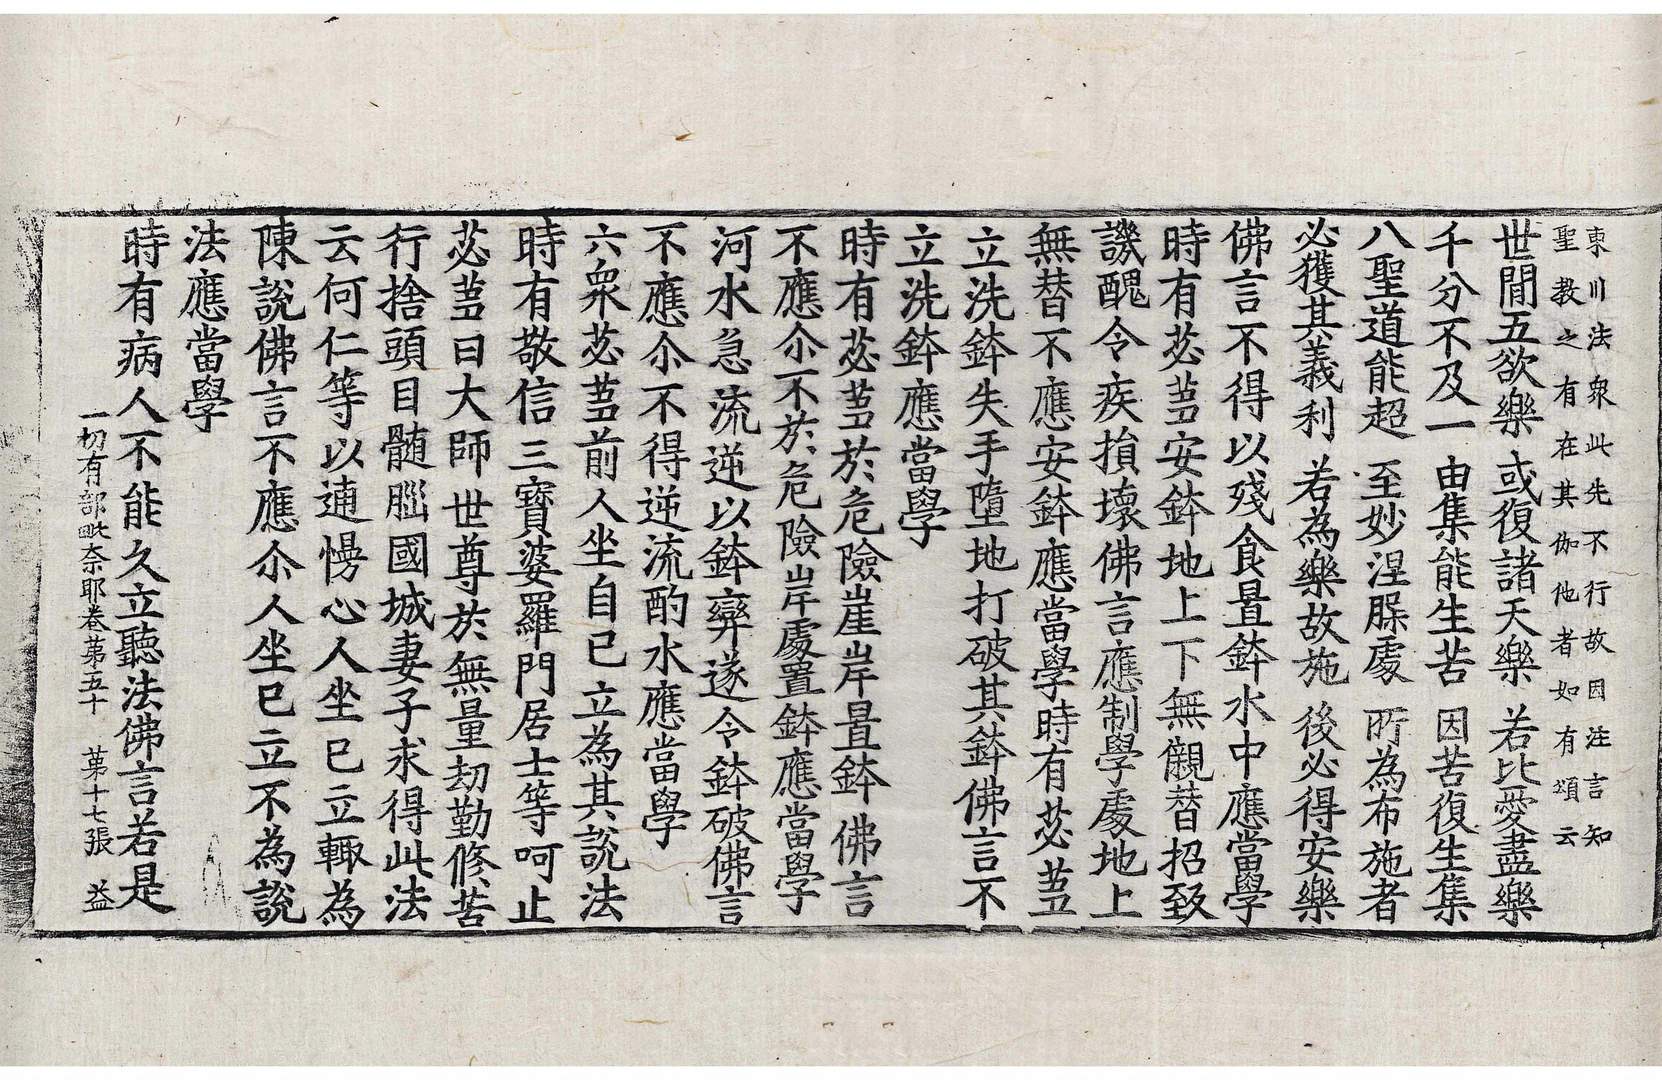 東川法衆此先不行故因注言知
聖教之有在其伽他者如有頌云
世間五欲樂 或復諸天樂 若比愛盡樂
千分不及一 由集能生苦 因苦復生集
八聖道能超 至妙涅脵處 所為布施者
必獲其義利 若為樂故施 後必得安樂
佛言不得以殘食置鉢水中應當學
時有苾芻安鉢地上下無儭替招致
譏醜令疾損壞佛言應制學處地上
無替不應安鉢應當學時有苾芻
立洗鉢失手墮地打破其鉢佛言不
立洗鉢應當學
時有苾芻於危險崖岸置鉢佛言
不應尒不於危險岸處置鉢應當學
河水急流逆以鉢㪺遂令鉢破佛言
不應尒不得逆流酌水應當學
六衆苾芻前人坐自已立為其說法
時有敬信三寶婆羅門居士等呵止
苾芻曰大師世尊於無量劫勤修苦
行捨頭目髓腦國城妻子求得此法
云何仁等以逋慢心人坐已立輙為
陳說佛言不應尒人坐已立不為說
法應當學
時有病人不能久立聽法佛言若是
一切有部毗奈耶卷苐五十 苐十七張 益